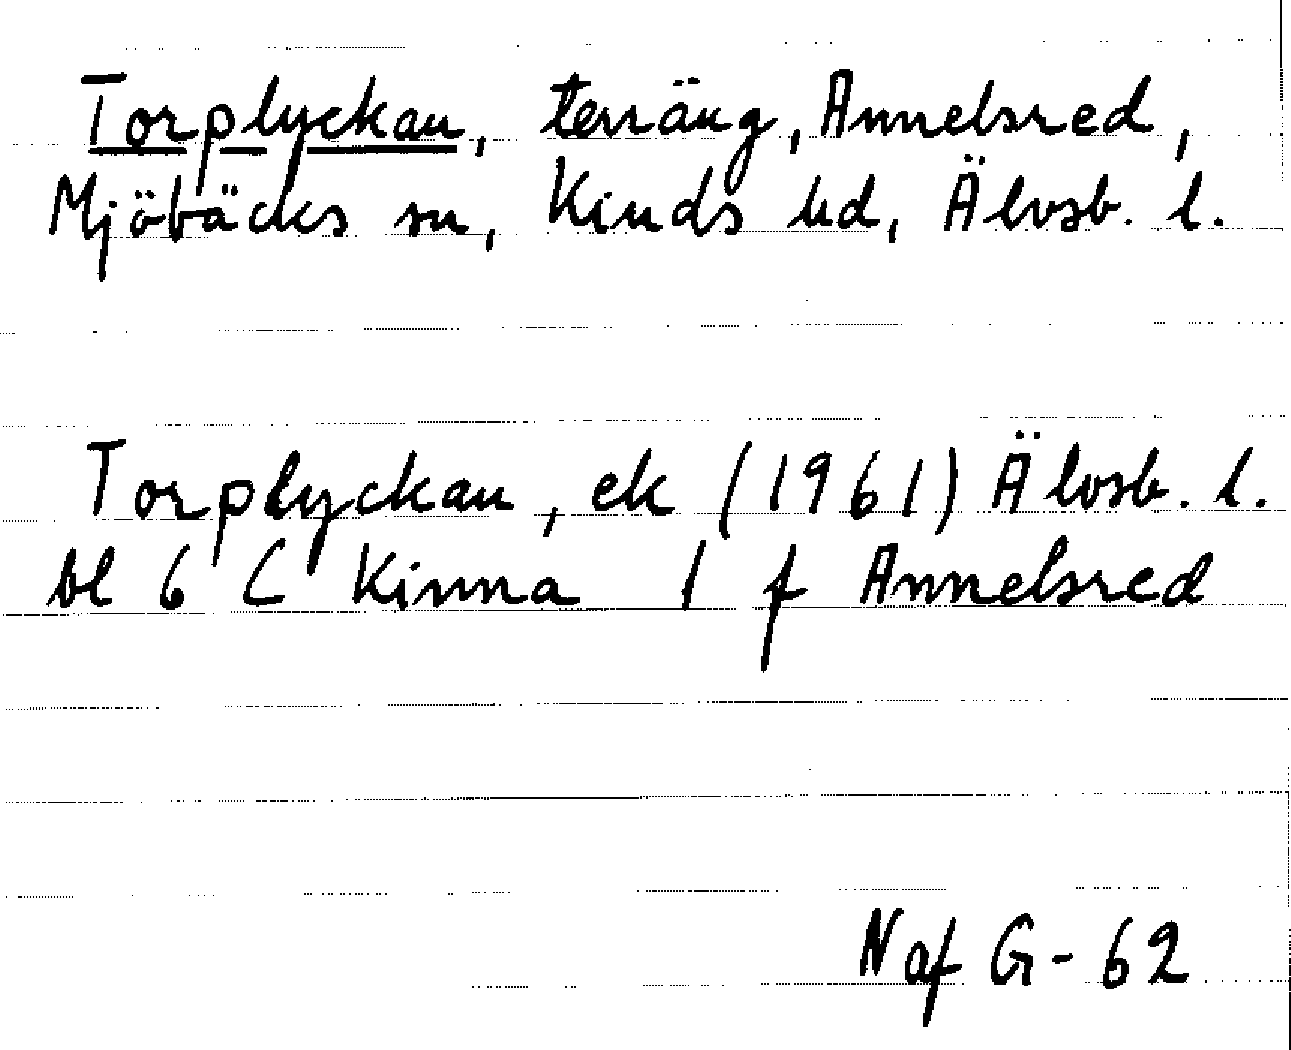 Torplyckan, terräng, Annelsred,
Mjöbäcks sn, Kinds hd, Älvsb. l.
Torplyckan, ek (1961) Älvsb. l.
bl 6 C Kinna 1 f Annelsred
N af G-62